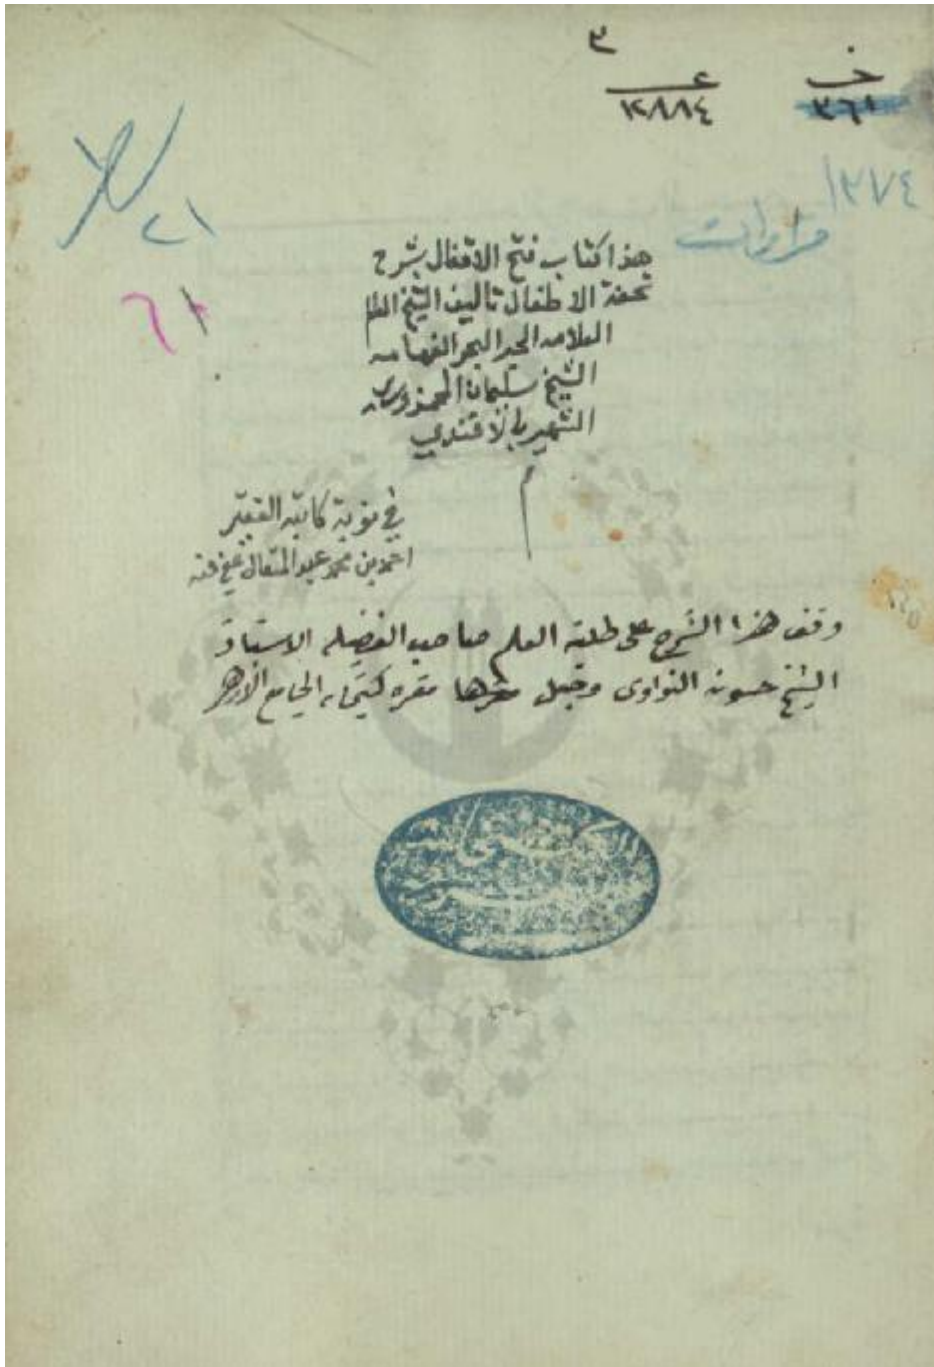 ٣
خ
٣٦١
ع
١٢٨٨١٤
١٣٧٤
قراءات
٢١
٦١
هذا كتاب فتح الاقفال بشرح
تحفة الاطفال تاليف الشيخ
العلامه الحبر البحر الفهامه
الشيخ سليمان الجمزوري
الشهير بالافندي
م
في نوبة كاتبه الفقير
احمد بن محمد عبد المتعال عفي عنه
وقف هذا الشرح على طلبة العلم صاحب الفضيله الاستاذ
الشيخ حسونه النواوى وجعل مقرها مقره كتبخانه الجامع الازهر